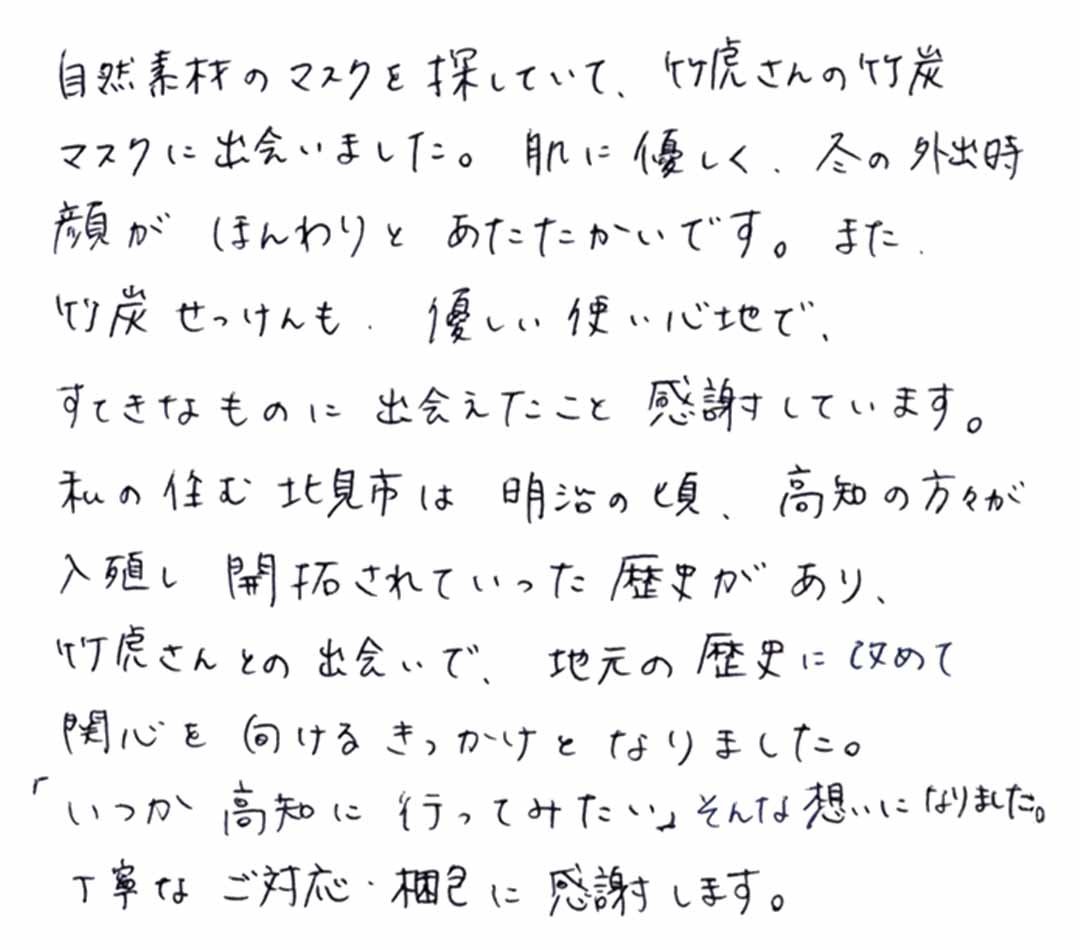 自然素材のマスクを探していて、竹虎さんの竹炭
マスクに出会いました。肌に優しく、冬の外出時
顔がほんわりとあたたかいです。また、
竹炭せっけんも、優しい使い心地で、
すてきなものに出会えたこと感謝しています。
私の住む北見市は明治の頃、高知の方々が
入殖し開拓されていった歴史があり、
竹虎さんとの出会いで、地元の歴史に改めて
関心を向けるきっかけとなりました。
「いつか高知に行ってみたい」そんな想いになりました。
丁寧なご対応・梱包に感謝します。